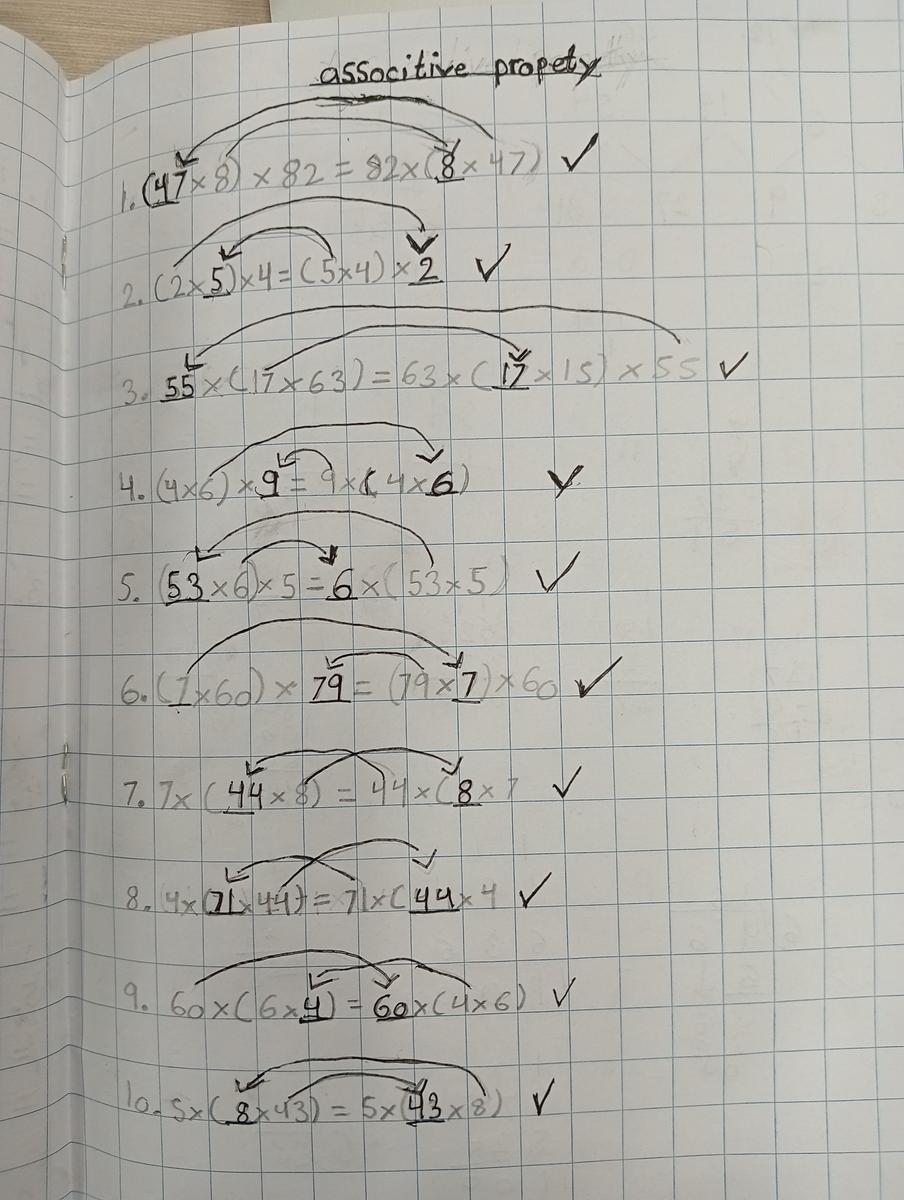 associtive propety
1. (47 × 8) × 82 = 82 × (8 × 47) ✓
2. (2 × 5) × 4 = (5 × 4) × 2 ✓
3. 55 × (17 × 63) = 63 × (17 × 15) × 55 ✓
4. (4 × 6) × 9 = 9 × (4 × 6) ✓
5. (53 × 6) × 5 = 6 × (53 × 5) ✓
6. (7 × 60) × 79 = (79 × 7) × 60 ✓
7. 7 × (44 × 8) = 44 × (8 × 7 ✓
8. 4 × (71 × 44) = 71 × (44 × 4 ✓
9. 60 × (6 × 4) = 60 × (4 × 6) ✓
10. 5 × (8 × 43) = 5 × (43 × 8) ✓